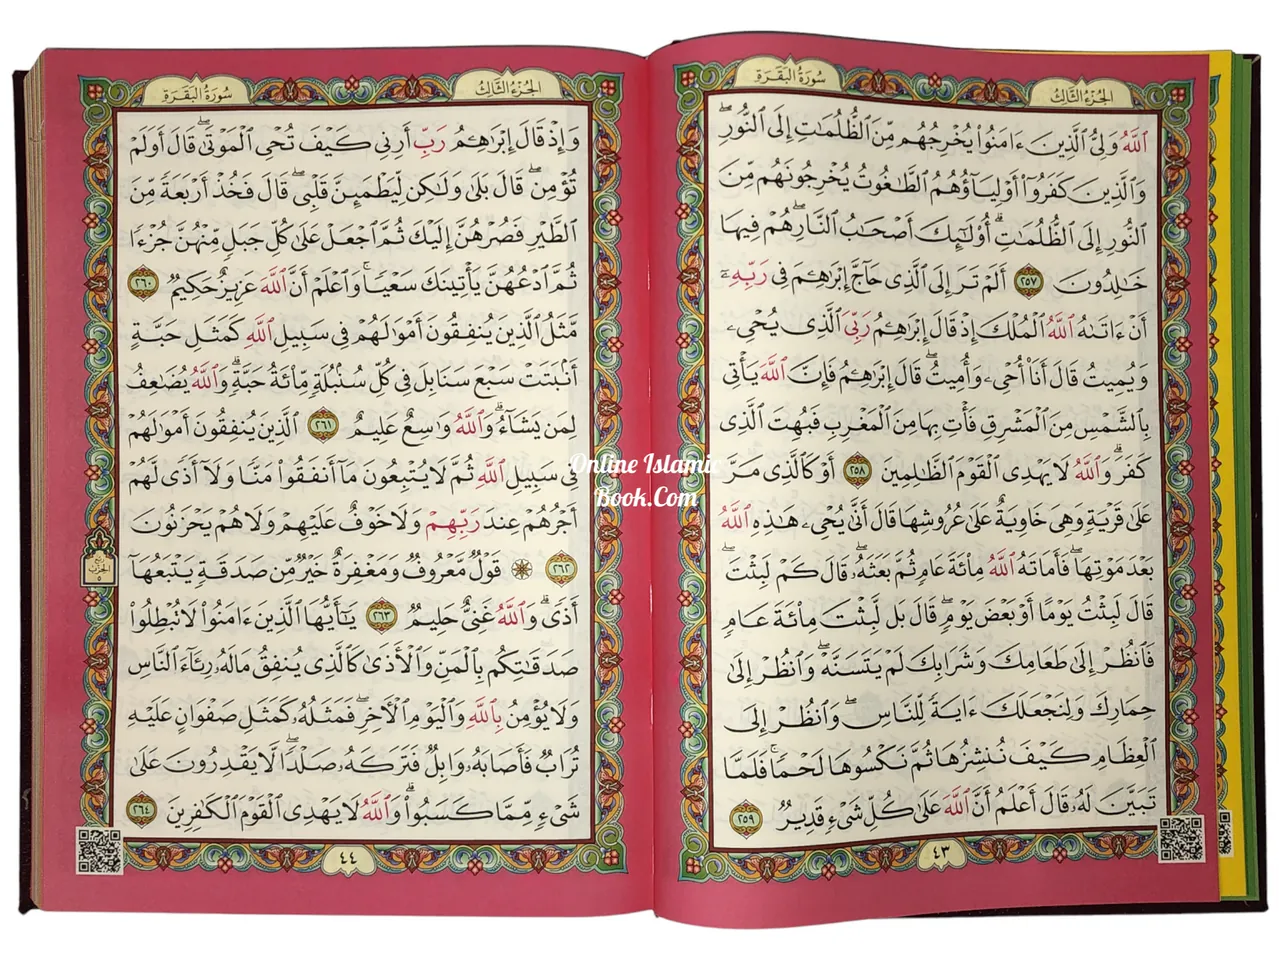 سُورَةُ البَقَرَةِ
الجُزْءُ الثَّالِثُ
ٱللَّهُ وَلِىُّ ٱلَّذِينَ ءَامَنُوا۟ يُخْرِجُهُم مِّنَ ٱلظُّلُمَٰتِ إِلَى ٱلنُّورِۖ
وَٱلَّذِينَ كَفَرُوٓا۟ أَوْلِيَآؤُهُمُ ٱلطَّٰغُوتُ يُخْرِجُونَهُم مِّنَ
ٱلنُّورِ إِلَى ٱلظُّلُمَٰتِۗ أُو۟لَٰٓئِكَ أَصْحَٰبُ ٱلنَّارِۖ هُمْ فِيهَا
خَٰلِدُونَ ٢٥٧ أَلَمْ تَرَ إِلَى ٱلَّذِى حَآجَّ إِبْرَٰهِـۧمَ فِى رَبِّهِۦٓ
أَنْ ءَاتَىٰهُ ٱللَّهُ ٱلْمُلْكَ إِذْ قَالَ إِبْرَٰهِـۧمُ رَبِّىَ ٱلَّذِى يُحْىِۦ
وَيُمِيتُ قَالَ أَنَا۠ أُحْىِۦ وَأُمِيتُۖ قَالَ إِبْرَٰهِـۧمُ فَإِنَّ ٱللَّهَ يَأْتِى
بِٱلشَّمْسِ مِنَ ٱلْمَشْرِقِ فَأْتِ بِهَا مِنَ ٱلْمَغْرِبِ فَبُهِتَ ٱلَّذِى
كَفَرَۗ وَٱللَّهُ لَا يَهْدِى ٱلْقَوْمَ ٱلظَّٰلِمِينَ ٢٥٨ أَوْ كَٱلَّذِى مَرَّ
عَلَىٰ قَرْيَةٍ وَهِىَ خَاوِيَةٌ عَلَىٰ عُرُوشِهَا قَالَ أَنَّىٰ يُحْىِۦ هَٰذِهِ ٱللَّهُ
بَعْدَ مَوْتِهَاۖ فَأَمَاتَهُ ٱللَّهُ مِا۟ئَةَ عَامٍ ثُمَّ بَعَثَهُۥۖ قَالَ كَمْ لَبِثْتَۖ
قَالَ لَبِثْتُ يَوْمًا أَوْ بَعْضَ يَوْمٍۖ قَالَ بَل لَّبِثْتَ مِا۟ئَةَ عَامٍ
فَٱنظُرْ إِلَىٰ طَعَامِكَ وَشَرَابِكَ لَمْ يَتَسَنَّهْۖ وَٱنظُرْ إِلَىٰ
حِمَارِكَ وَلِنَجْعَلَكَ ءَايَةً لِّلنَّاسِۖ وَٱنظُرْ إِلَى
ٱلْعِظَامِ كَيْفَ نُنشِزُهَا ثُمَّ نَكْسُوهَا لَحْمًاۚ فَلَمَّا
تَبَيَّنَ لَهُۥ قَالَ أَعْلَمُ أَنَّ ٱللَّهَ عَلَىٰ كُلِّ شَىْءٍ قَدِيرٌ ٢٥٩
٤٣
سُورَةُ البَقَرَةِ
الجُزْءُ الثَّالِثُ
وَإِذْ قَالَ إِبْرَٰهِـۧمُ رَبِّ أَرِنِى كَيْفَ تُحْىِ ٱلْمَوْتَىٰۖ قَالَ أَوَلَمْ
تُؤْمِنۖ قَالَ بَلَىٰ وَلَٰكِن لِّيَطْمَئِنَّ قَلْبِىۖ قَالَ فَخُذْ أَرْبَعَةً مِّنَ
ٱلطَّيْرِ فَصُرْهُنَّ إِلَيْكَ ثُمَّ ٱجْعَلْ عَلَىٰ كُلِّ جَبَلٍ مِّنْهُنَّ جُزْءًا
ثُمَّ ٱدْعُهُنَّ يَأْتِينَكَ سَعْيًاۚ وَٱعْلَمْ أَنَّ ٱللَّهَ عَزِيزٌ حَكِيمٌ ٢٦٠
مَّثَلُ ٱلَّذِينَ يُنفِقُونَ أَمْوَٰلَهُمْ فِى سَبِيلِ ٱللَّهِ كَمَثَلِ حَبَّةٍ
أَنۢبَتَتْ سَبْعَ سَنَابِلَ فِى كُلِّ سُنۢبُلَةٍ مِّا۟ئَةُ حَبَّةٍۗ وَٱللَّهُ يُضَٰعِفُ
لِمَن يَشَآءُۗ وَٱللَّهُ وَٰسِعٌ عَلِيمٌ ٢٦١ ٱلَّذِينَ يُنفِقُونَ أَمْوَٰلَهُمْ
فِى سَبِيلِ ٱللَّهِ ثُمَّ لَا يُتْبِعُونَ مَآ أَنفَقُوا۟ مَنًّا وَلَآ أَذًىۙ لَّهُمْ
أَجْرُهُمْ عِندَ رَبِّهِمْ وَلَا خَوْفٌ عَلَيْهِمْ وَلَا هُمْ يَحْزَنُونَ
٢٦٢ ۞ قَوْلٌ مَّعْرُوفٌ وَمَغْفِرَةٌ خَيْرٌ مِّن صَدَقَةٍ يَتْبَعُهَآ
أَذًىۗ وَٱللَّهُ غَنِىٌّ حَلِيمٌ ٢٦٣ يَٰٓأَيُّهَا ٱلَّذِينَ ءَامَنُوا۟ لَا تُبْطِلُوا۟
صَدَقَٰتِكُم بِٱلْمَنِّ وَٱلْأَذَىٰ كَٱلَّذِى يُنفِقُ مَالَهُۥ رِئَآءَ ٱلنَّاسِ
وَلَا يُؤْمِنُ بِٱللَّهِ وَٱلْيَوْمِ ٱلْءَاخِرِۖ فَمَثَلُهُۥ كَمَثَلِ صَفْوَانٍ عَلَيْهِ
تُرَابٌ فَأَصَابَهُۥ وَابِلٌ فَتَرَكَهُۥ صَلْدًاۖ لَّا يَقْدِرُونَ عَلَىٰ
شَىْءٍ مِّمَّا كَسَبُوا۟ۗ وَٱللَّهُ لَا يَهْدِى ٱلْقَوْمَ ٱلْكَٰفِرِينَ ٢٦٤
ربع
الحزب
٥
٤٤
Online Islamic
Book.Com